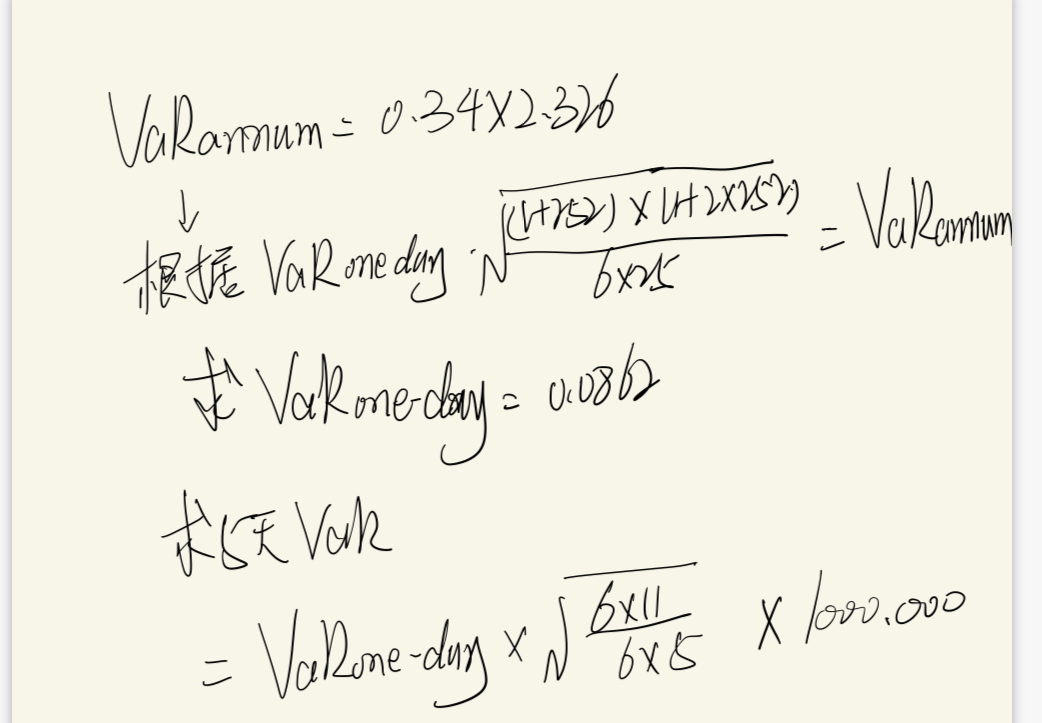 VaRannum = 0.34×2.326
↓
根据 VaRone day · √((1+252)×(1+2×252)/(6×25)) = VaRannum
求 VaRone-day = 0.0862
求5天 VaR
= VaRone-day × √((6×11)/(6×5)) × 1000.000